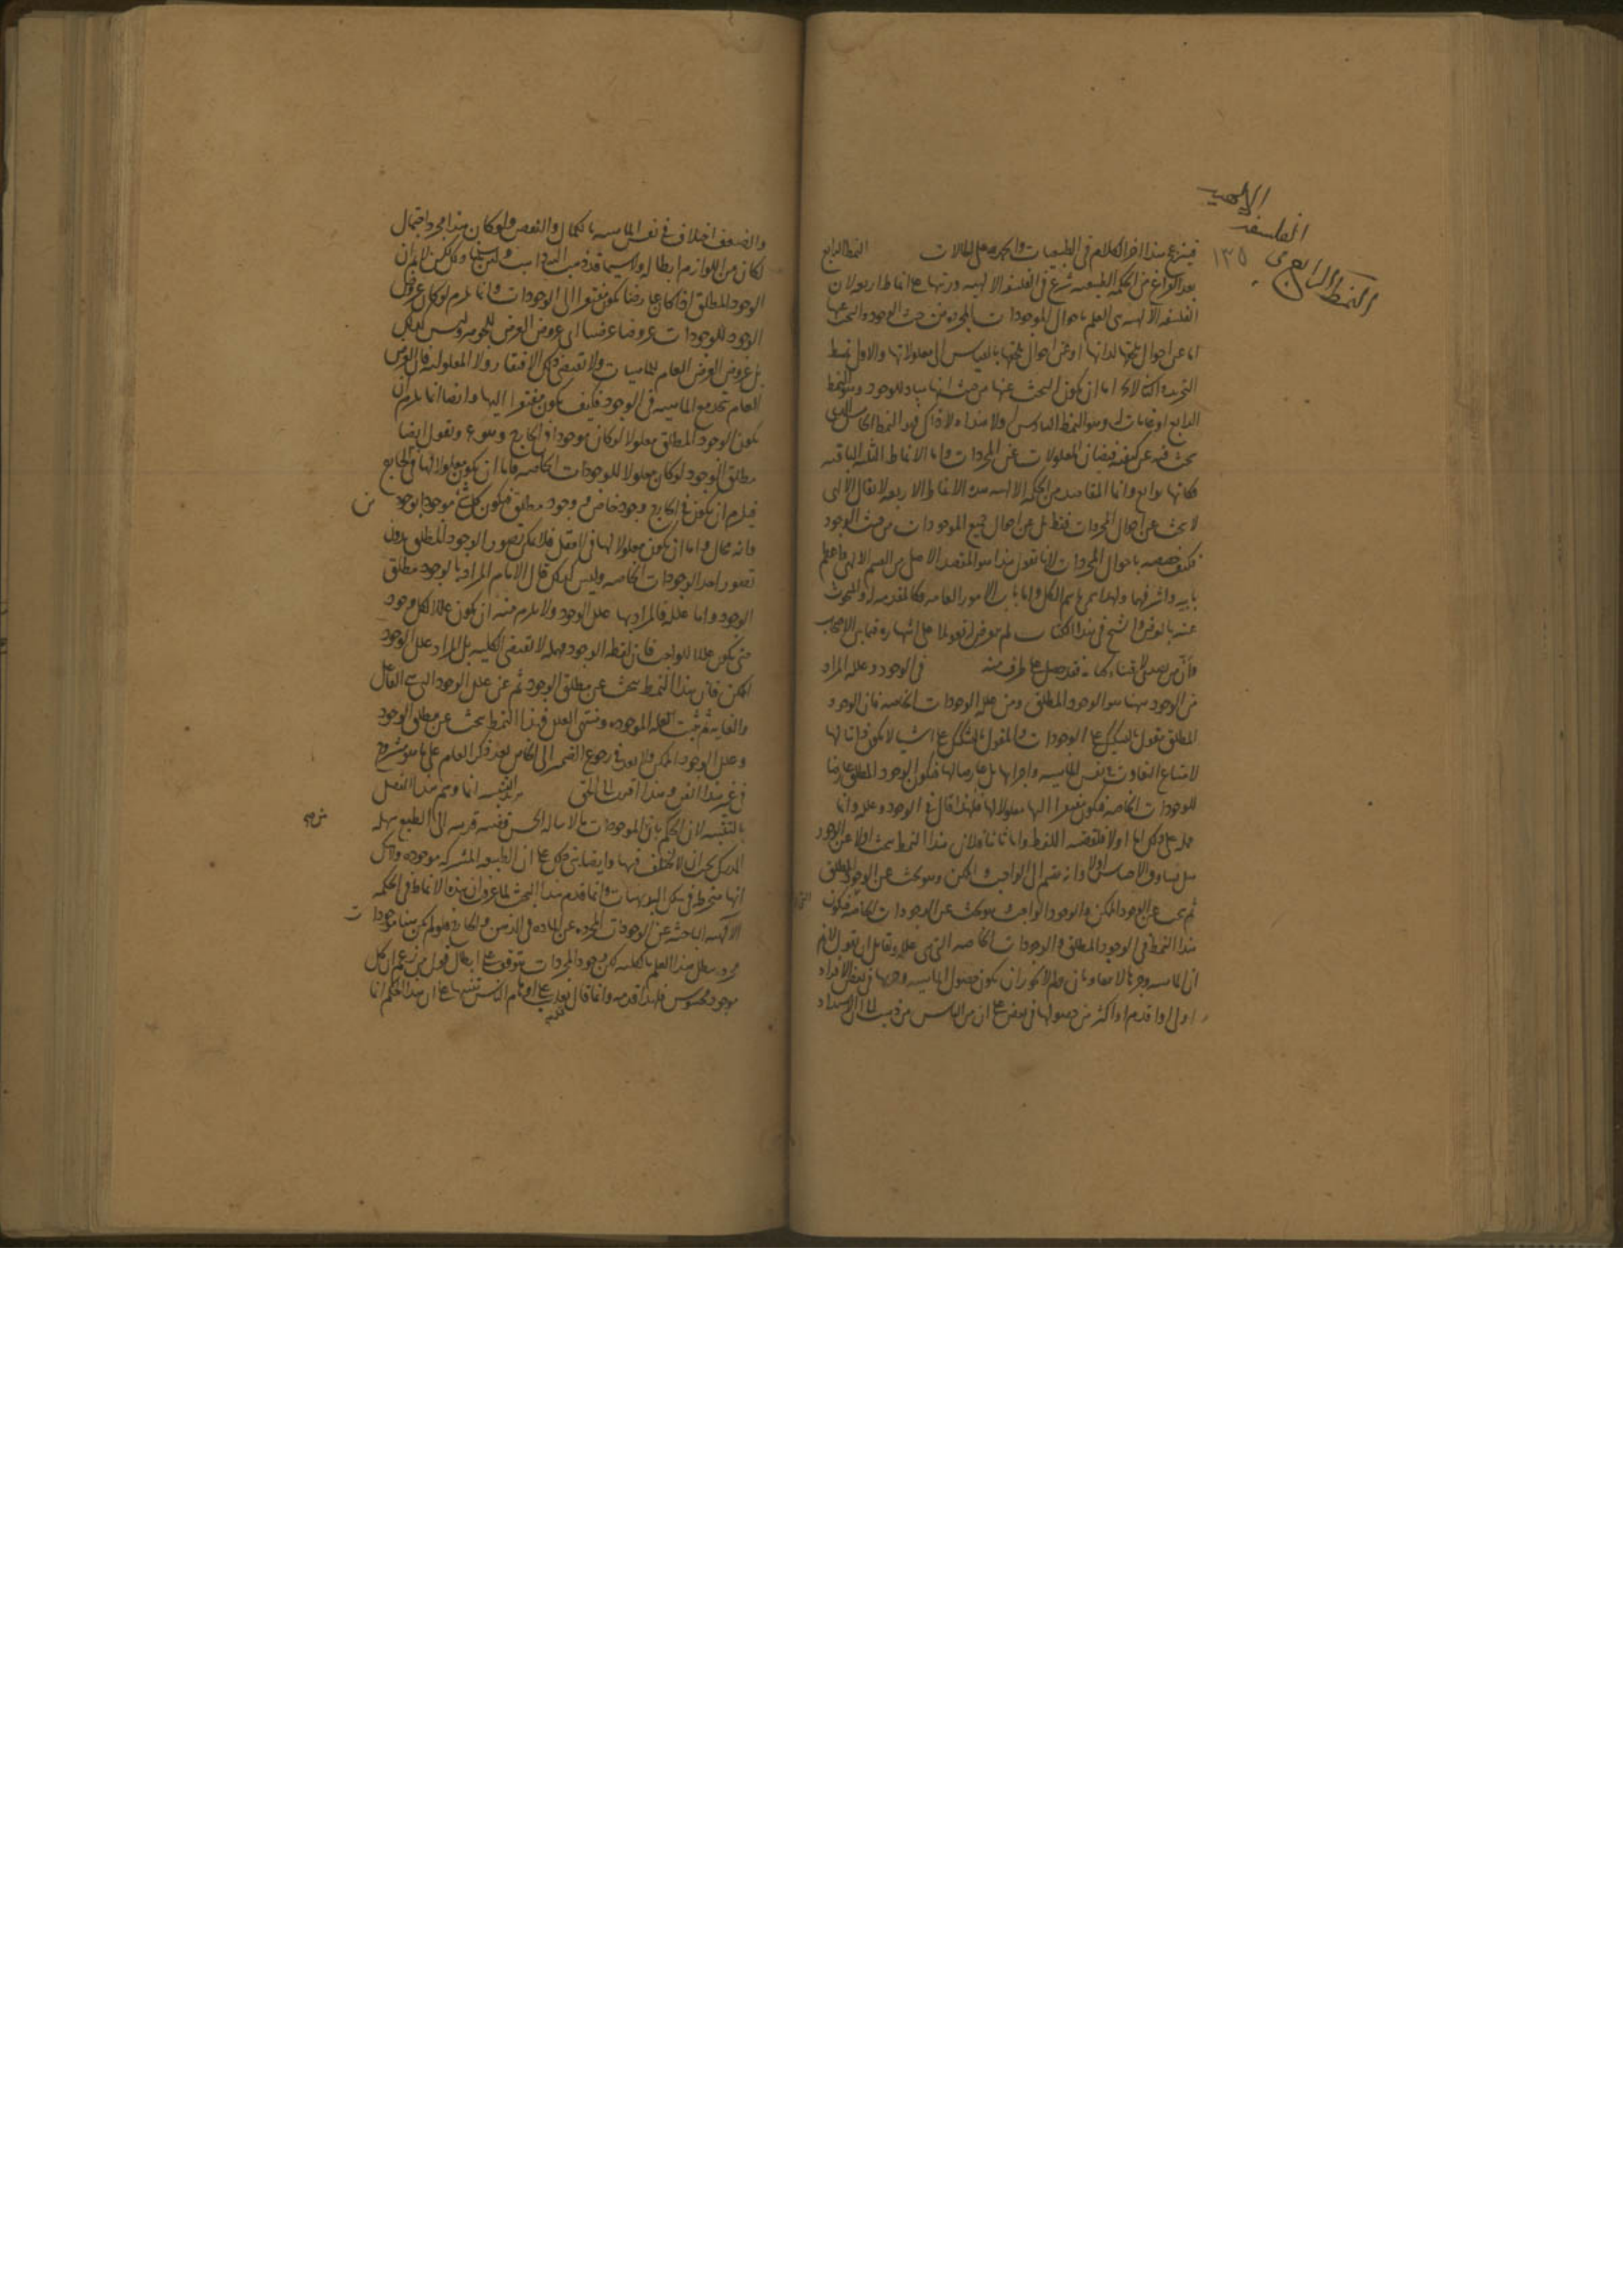 الالهية
الفلسفة
١٣٥
النمط الرابع فى
فى هذا اخر الكلام فى الطبيعيات والحمد على كل حال النمط الرابع
بعد الفراغ من الحكمة الطبيعية شرع فى الفلسفة الالهية ورتبها على انماط اربعة لان
الفلسفة الالهية هى العلم باحوال الموجودات المجردة من حيث الوجود والبحث عنها
اما عن احوال تلحقها لذاتها او عن احوال تلحقها بالقياس الى معلولاتها والاول نمط
التجريد والثانى لا يخ اما ان يكون البحث عنها من حيث انها مباد للوجود وهو النمط
الرابع او غايات له وهو النمط السادس ولا هذا ولا ذاك فهو النمط الخامس الذى
يبحث فيه عن كيفية فيضان المعلولات عن المجردات واما الانماط الثلثة الباقية
فكانها توابع وانما المقاصد من الحكمة الالهية هذه الانماط الاربعة لا يقال الالهى
لا يبحث عن احوال المجردات فقط بل عن احوال جميع الموجودات من حيث الوجود
فكيف خصصه باحوال المجردات لانا نقول هذا هو المقصد الاصلى من القسم الالهى واعظم
بابيه واشرفهما ولهذا سمى باسم الكل واما باب الامور العامة فكالمقدمة له والمبحوث
عنه بالعرض والشيخ فى هذا الكتاب لم يتعرض له تعويلا على اشتهاره فيما بين الاصحاب
وان من يصدى لاقتناء فقد حصل على طرف منه فى الوجود وعلله المراد
من الوجود هاهنا هو الوجود المطلق ومن علله الوجودات الخاصة فان الوجود
المطلق مقول بالتشكيك على الوجودات والمقول بالتشكيك على اشياء لا يكون ذاتيا لها
لامتناع التفاوت فى نفس الماهية واجزائها بل عارضا لها فيكون الوجود المطلق عارضا
للوجودات الخاصة فيكون مفتقرا اليها معلولا لها فلهذا قال فى الوجود وعلله وانما
حمله على ذلك اما اولا فلقضية اللفظ واما ثانيا فلان هذا النمط يبحث اولا عن الوجود
هل يساوق الاحساس اولا وانه ينقسم الى الواجب والممكن وهو بحث عن الوجود المطلق
ثم يبحث عن الوجود الممكن والوجود الواجب وهو بحث عن الوجودات الخاصة فيكون
هذا النمط فى الوجود المطلق والوجودات الخاصة التى هى علله ولقائل ان يقول لا نم
ان الماهية وجزءها لا يتفاوتان ولم لا يجوز ان يكون حصول الماهية وجزءها فى بعض الافراد
اولى او اقدم او اكثر من حصولها فى بعض على ان من الناس من ذهب الى ان الاشتداد
والضعف اختلاف فى نفس الماهية بالكمال والنقص ولو كان هذا مجرد احتمال
لكان من اللوازم ابطاله ولا سيما قد ذهب اليه ذاهب ولئن سلمنا ذلك لكن لا نم ان
الوجود المطلق اذا كان عارضا يكون مفتقرا الى الوجودات وانما يلزم لو كان عروض
الوجود للوجودات عروضا عرضيا اى عروض العرض للجوهر وليس كذلك
بل عروض العرض العام للماهيات ولا يقتضى ذلك الافتقار ولا المعلولية فان العرض
العام يتحد مع الماهية فى الوجود فكيف يكون مفتقرا اليها وايضا انما يلزم ان
يكون الوجود المطلق معلولا لو كان موجودا فى الخارج وهو مم ونقول ايضا
مطلق الوجود لو كان معلولا للوجودات الخاصة فاما ان يكون معلولا لها فى الخارج
فيلزم ان يكون فى الخارج وجود خاص ووجود مطلق فيكون كل شئ موجودا بوجودين
وانه محال واما ان يكون معلولا لها فى العقل فلا يمكن تصور الوجود المطلق بدون
تصور احد الوجودات الخاصة وليس كذلك قال الامام المراد بالوجود مطلق
الوجود واما علله فالمراد بها علل الوجود ولا يلزم منه ان يكون عللا لكل وجود
حتى يكون عللا للواجب فان لفظة الوجود مهملة لا تقتضى الكلية بل المراد علل الوجود
الممكن فان هذا النمط يبحث عن مطلق الوجود ثم عن علل الوجود التى هى الفاعل
والغاية ثم يثبت العلة الموجودة ومنتهى العلل فهذا النمط يبحث عن مطلق الوجود
وعلل الوجود الممكن ولا بعد فى رجوع الضمير الى الخاص بعد ذكر العام على ما هو مشروح
فى غير هذا الفن وهذا اقرب الى الحق تنبيه انما وسم هذا الفصل
بالتنبيه لان الحكم بان الموجودات قضية قريبة الى الطبع سهلة
المدرك يجب ان لا يختلف فيها وايضا بنى ذلك على ان الطبيعة المشتركة موجودة
انها منخرطة فى سلك البديهيات وانما قدم هذا البحث لما عرف ان هذه الانماط فى الحكمة
الالهية الباحثة عن الموجودات المجردة عن المادة فى الذهن والخارج فلو لم يكن هنا موجودات
مجردة بطل هذا العلم بالكلية لكن وجود المجردات يتوقف على ابطال قول من زعم ان كل
موجود محسوس فلهذا قدمه وانما قال يغلب على اوهام الناس تنبيها على ان هذا الحكم انما